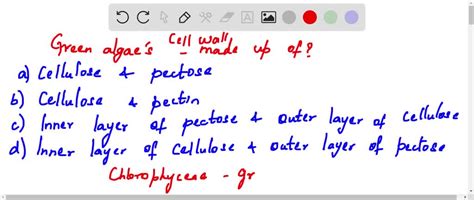 Green algae's Cell wall made up of?
a) Cellulose & pectose
b) Cellulose & pectin
c) Inner layer of pectose & outer layer of cellulose
d) Inner layer of cellulose & outer layer of pectose
Chlorophyceae - gr